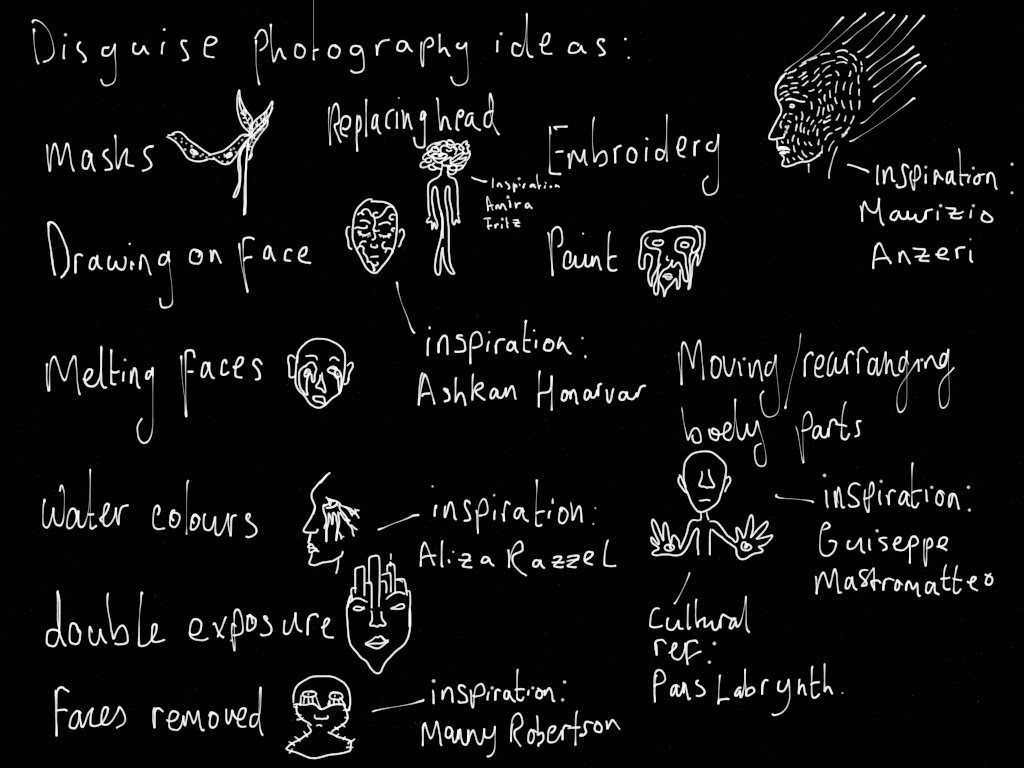 Disguise photography ideas:
Masks
Replacing head
inspiration
Amira
Fritz
Embroidery
inspiration:
Maurizio
Anzeri
Drawing on face
inspiration:
Ashkan Honarvar
Paint
Melting faces
Moving/rearranging
body parts
inspiration:
Guiseppe
Mastromatteo
Cultural
ref:
Pans Labrynth.
Water colours
inspiration:
Aliza Razzel
double exposure
Faces removed
inspiration:
Manny Robertson